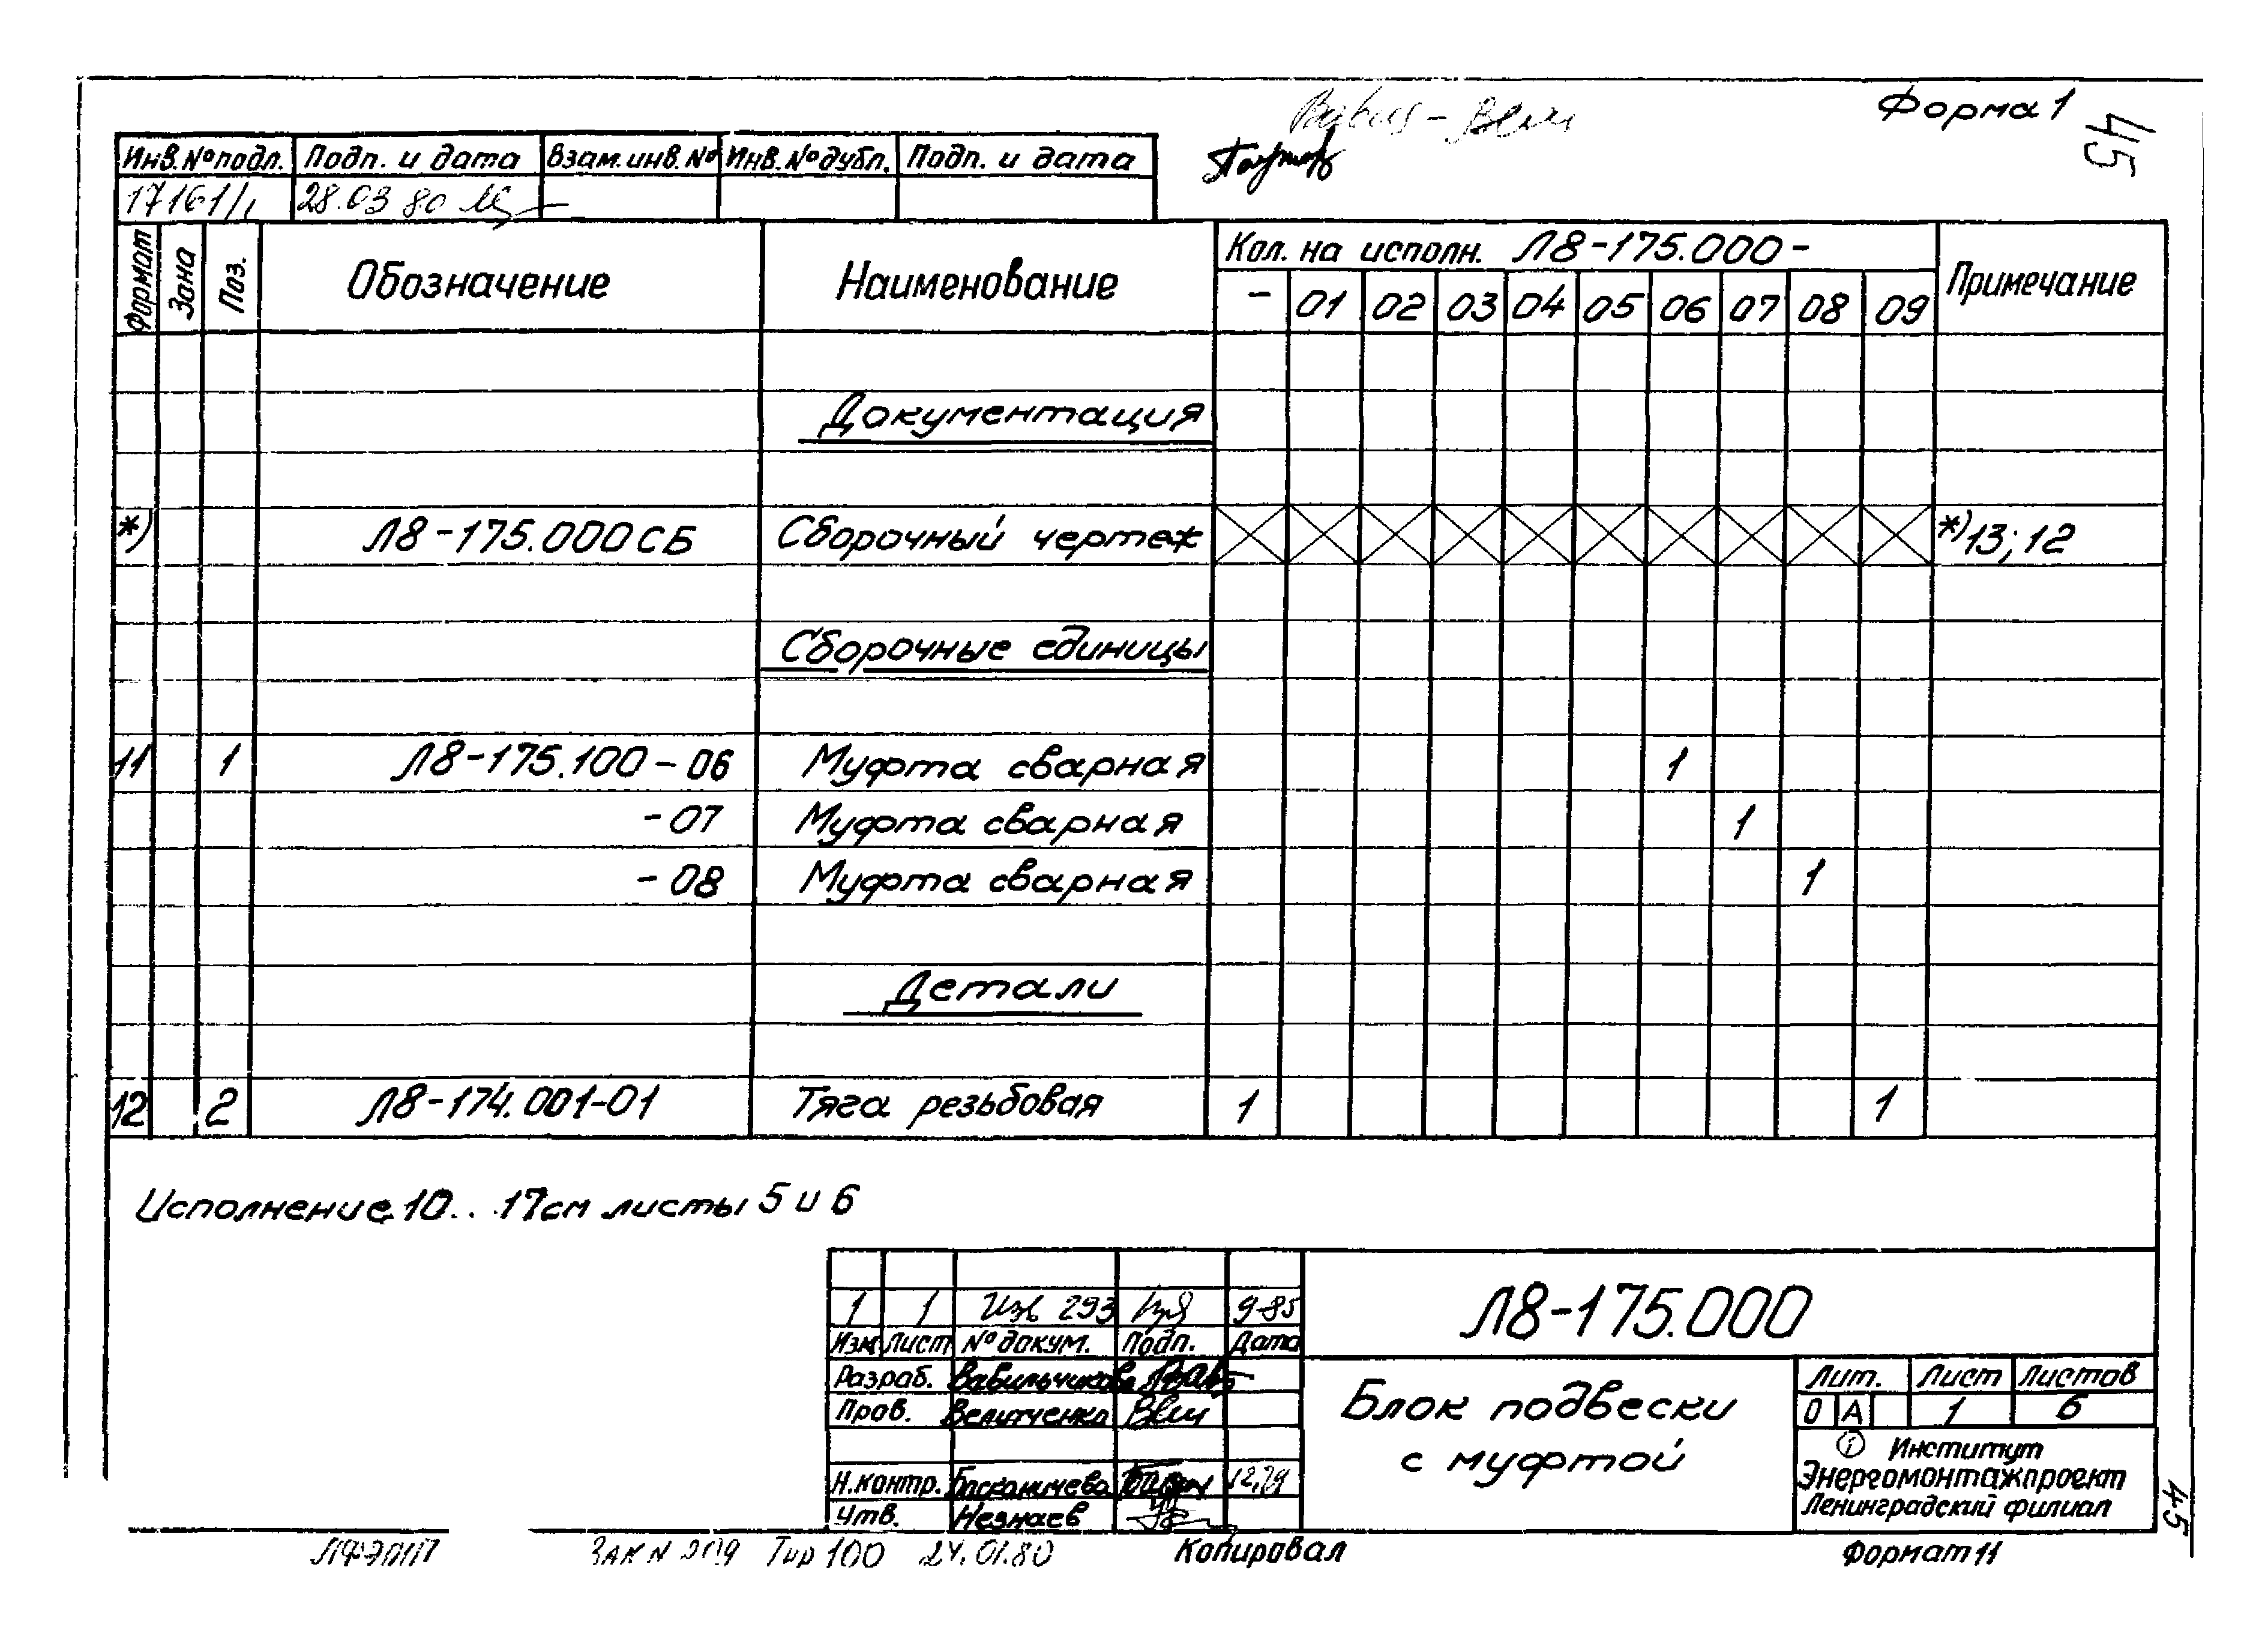 Форма 1
45
Инв.№подл. Подп. и дата Взам.инв.№ Инв.№дубл. Подп. и дата
17161/1 28.03 80
Формат Зона Поз. Обозначение Наименование Кол. на исполн. Л8-175.000- Примечание
- 01 02 03 04 05 06 07 08 09
Документация
*) Л8-175.000СБ Сборочный чертеж *)13; 12
Сборочные единицы
11 1 Л8-175.100-06 Муфта сварная 1
-07 Муфта сварная 1
-08 Муфта сварная 1
Детали
12 2 Л8-174.001-01 Тяга резьбовая 1 1
Исполнение 10...17см листы 5 и 6
1 1 Изв 293 9-85
Изм Лист № докум. Подп. Дата
Разраб. Вавильчикова
Пров. Велитченко
Н.контр. 12.79
Утв. Незнаев
Л8-175.000
Блок подвески
с муфтой
Лит. Лист Листов
О А 1 6
Институт
Энергомонтажпроект
Ленинградский филиал
45
ЗАК N 209 Тир 100 24.01.80 Копировал Формат 11